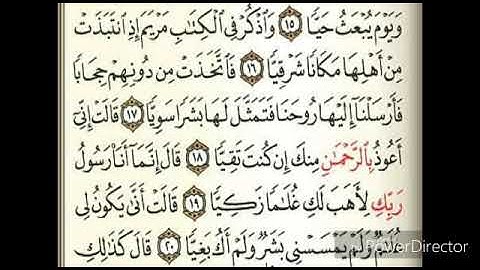 وَيَوْمَ يُبْعَثُ حَيًّا ١٥ وَٱذْكُرْ فِى ٱلْكِتَٰبِ مَرْيَمَ إِذِ ٱنتَبَذَتْ
مِنْ أَهْلِهَا مَكَانًا شَرْقِيًّا ١٦ فَٱتَّخَذَتْ مِن دُونِهِمْ حِجَابًا
فَأَرْسَلْنَآ إِلَيْهَا رُوحَنَا فَتَمَثَّلَ لَهَا بَشَرًا سَوِيًّا ١٧ قَالَتْ إِنِّىٓ
أَعُوذُ بِٱلرَّحْمَٰنِ مِنكَ إِن كُنتَ تَقِيًّا ١٨ قَالَ إِنَّمَآ أَنَا۠ رَسُولُ
رَبِّكِ لِأَهَبَ لَكِ غُلَٰمًا زَكِيًّا ١٩ قَالَتْ أَنَّىٰ يَكُونُ لِى
غُلَٰمٌ وَلَمْ يَمْسَسْنِى بَشَرٌ وَلَمْ أَكُ بَغِيًّا ٢٠ قَالَ كَذَٰلِكِ
PowerDirector